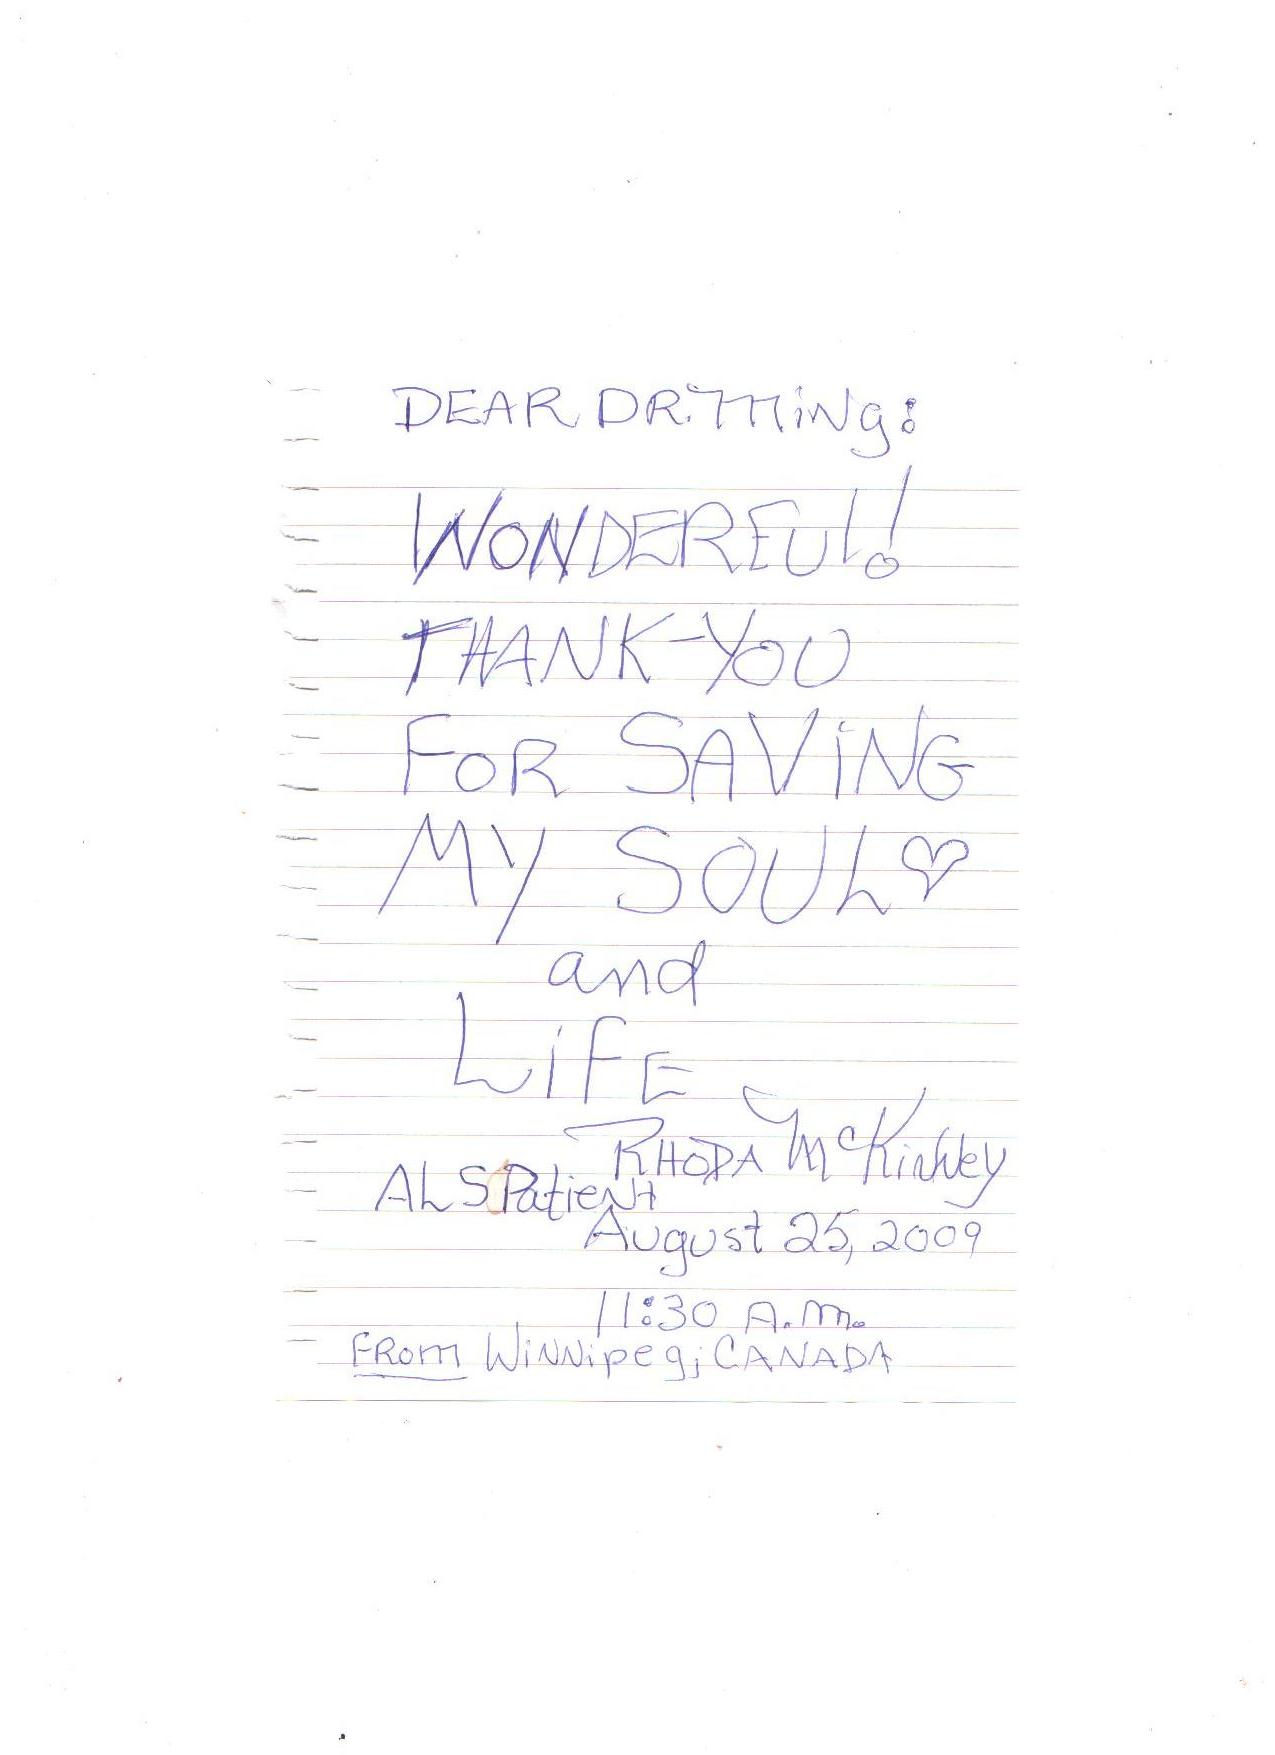 DEAR DR. Ming:
WONDERFUL!
THANK-YOU
FOR SAViNG
MY SOUL♡
and
LiFE
RHODA McKiNNey
ALS PatieNt
August 25, 2009
11:30 A.M.
FROM WiNNipeg, CANADA